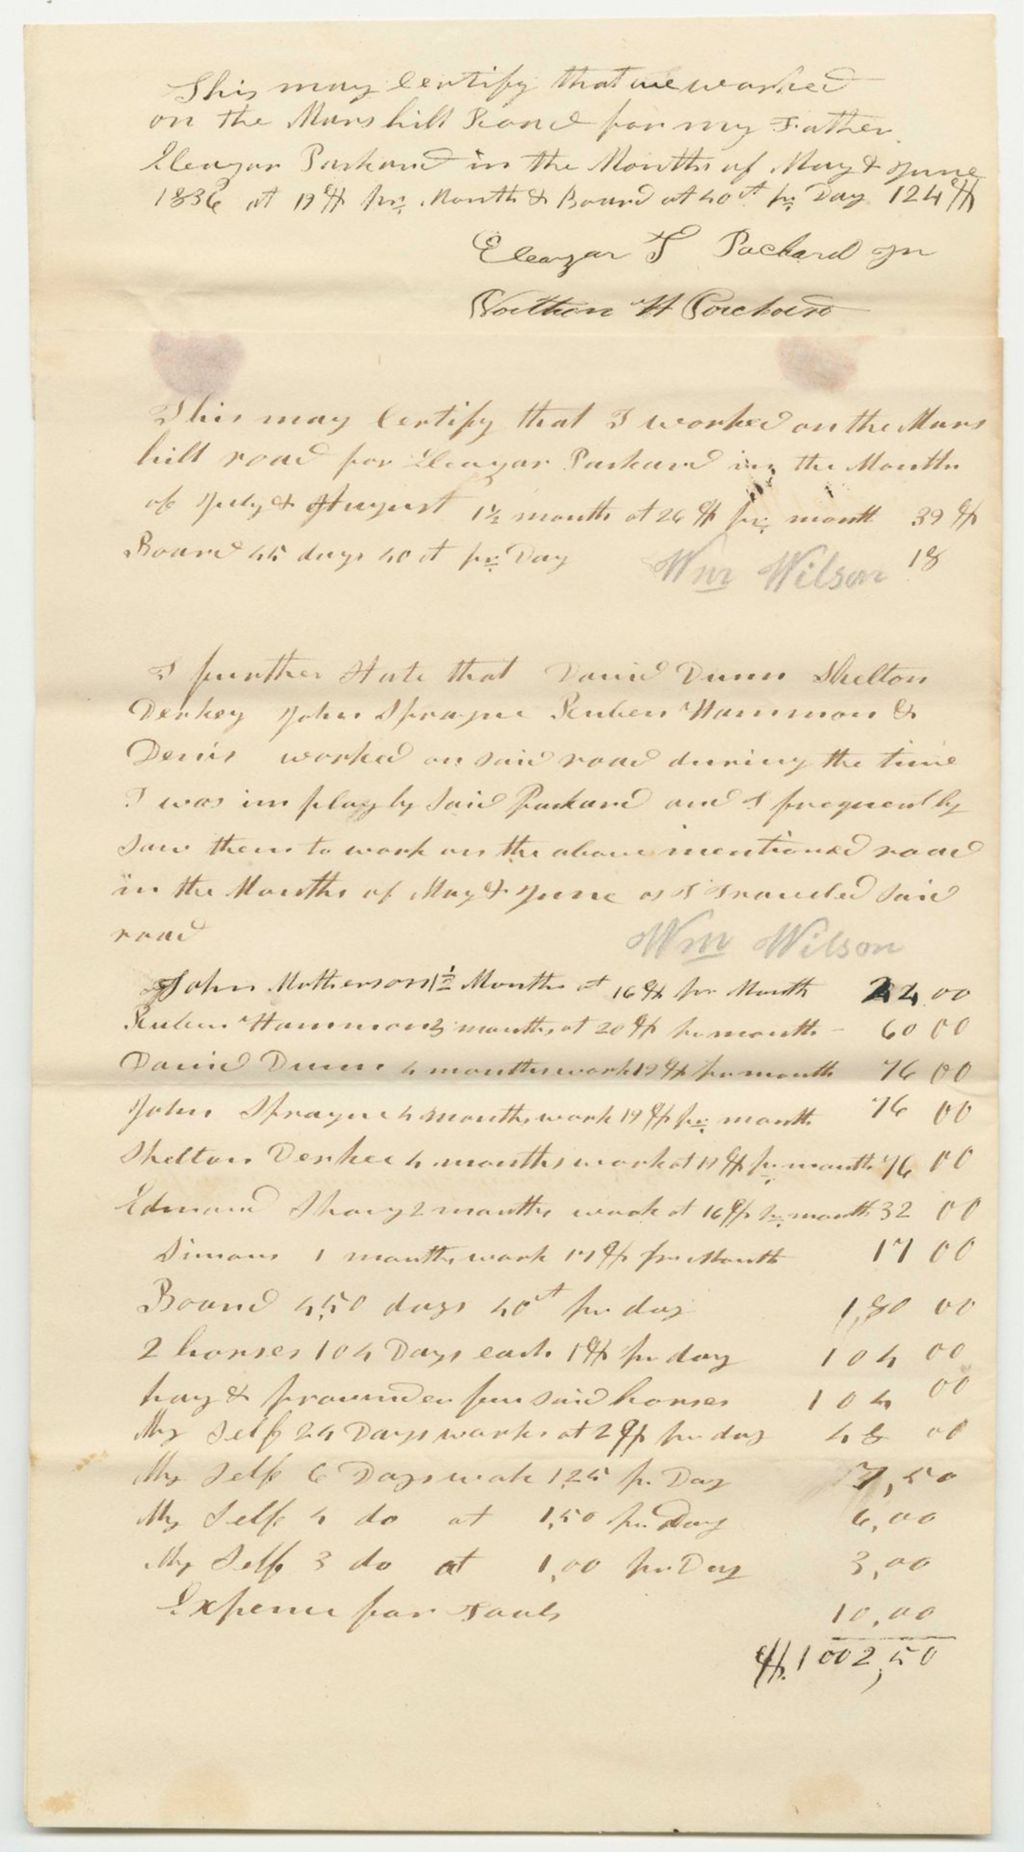 This may Certify that we worked
on the Mars hill Road for my Father
Eleazar Packard in the Months of May & June
1836 at 19$ pr. Month & Board at 40ct pr. Day 124$
Eleazar T Packard Jr
Nathan H Packard
This may Certify that I worked on the Mars
hill road for Eleazar Packard in the Months
of July & August 1½ month at 26$ pr. month 39$
Board 45 days 40ct pr. Day 18
Wm Wilson
I further State that David Dunn Shelton
Derkey John Sprague Reuben Hammon &
Denis worked on said road during the time
I was imploy by Said Packard and I frequently
Saw them to work on the above mentioned road
in the Months of May & June as I Traveled Said
road
Wm Wilson
John Matherson 1½ Months at 16$ pr Month 24 00
Reuben Hammon 3 months at 20$ pr month - 60 00
David Dunn 4 months work 19$ pr month 76 00
John Sprague 4 months work 19$ pr. month 76 00
Shelton Derkee 4 months work at 19$ pr. month 76 00
Edmand 2 months work at 16$ pr. month 32 00
Simons 1 months work 17$ pr Month 17 00
Board 450 days 40ct pr day 180 00
2 horses 104 Days each 1$ pr day 104 00
hay & provender for said horses 104 00
My Self 24 Days works at 2$ pr day 48 00
My Self 6 Days work 1,25 pr Day 7,50
My Self 4 do at 1,50 pr Day 6,00
My Self 3 do at 1,00 pr Day 3,00
Expence for Tools 10,00
$.1002,50